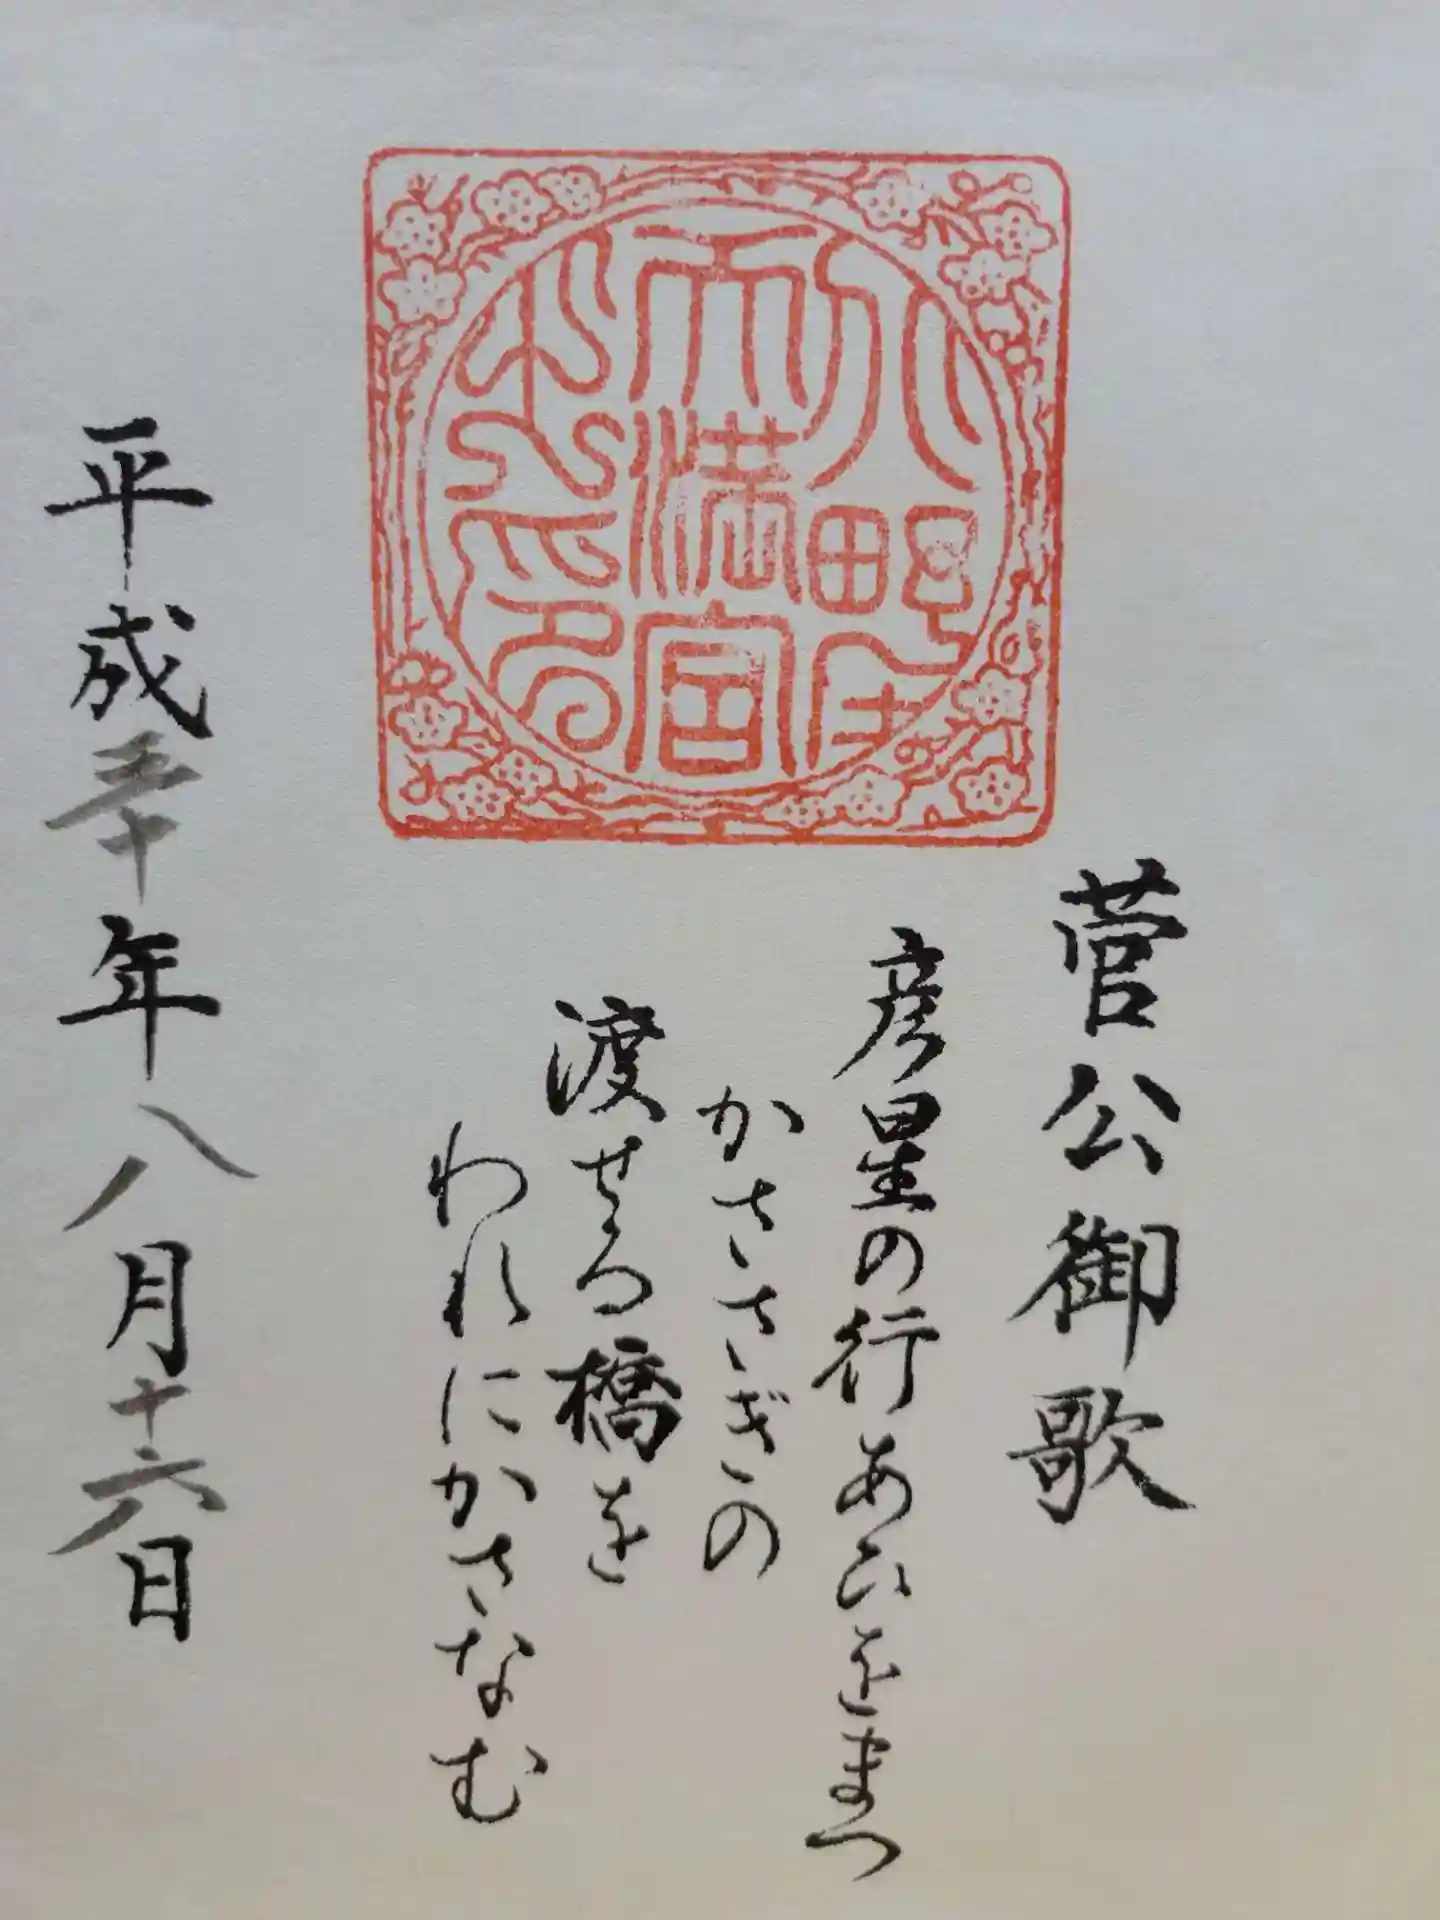 八野屯
天満宮
之印
菅公御歌
彦星の行あひをまつ
かささぎの
渡せる橋を
われにかさなむ
平成三十年八月十六日